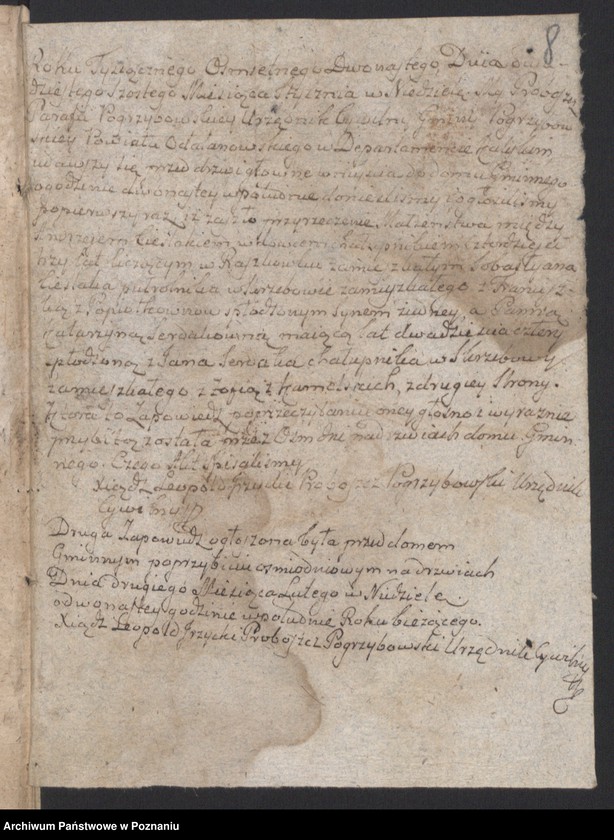 8
Roku Tysiącznego Osmsetnego Dwonastego Dnia dwu-
dziestego szostego Miesiąca Stycznia w Niedzielę. My Proboszcz
Parafii Pogrzybowskiey Urzędnik Cywilny Gminy Pogrzybow
skiey Powiatu Odalanowskiego w Departamencie Kaliskim
udawszy się przed drzwi głowne w niyscia do domu Gminnego
o godzinie dwonastey w południe donieslismy i ogłosilismy
po pierwszy raz, iż zaszło przyrzeczenie Małżenstwa między
Andrzejem Cieslakiem wdowcem chałupnikiem czterdziesci
trzy lat liczącym w Raszkowku zamieszkałym Sobestyana
Cieslaka w Skrzebowie zamieszkałego z Francisz-
ką z spłodzonym synem z iedney, a Panną
Katarzyną Serdakowną maiącą lat dwadziescia cztery
spłodzoną z Jana Serdaka chałupnika w Skrzebowy
zamieszkałego z Zofią z z drugiey Strony.
Ktora to Zapowiedz po przeczytaniu oney głosno i wyraznie
przybitą została przez nadrzwiach domu Gmin
nego. Czego Akt Spisalismy
Xiądz Leopold Proboszcz Pogrzybowski Urzędnik
Cywilny
Druga Zapowiedz ogłoszona była przed domem
Gminnym po przybiciu osmiodniowym nadrzwiach
Dnia drugiego Miesiąca Lutego w Niedziele
o dwonastey godzinie w południe Roku bieżącego.
Xiądz Leopold Proboszcz Pogrzybowski Urzędnik Cywilny
Archiwum Państwowe w Poznaniu